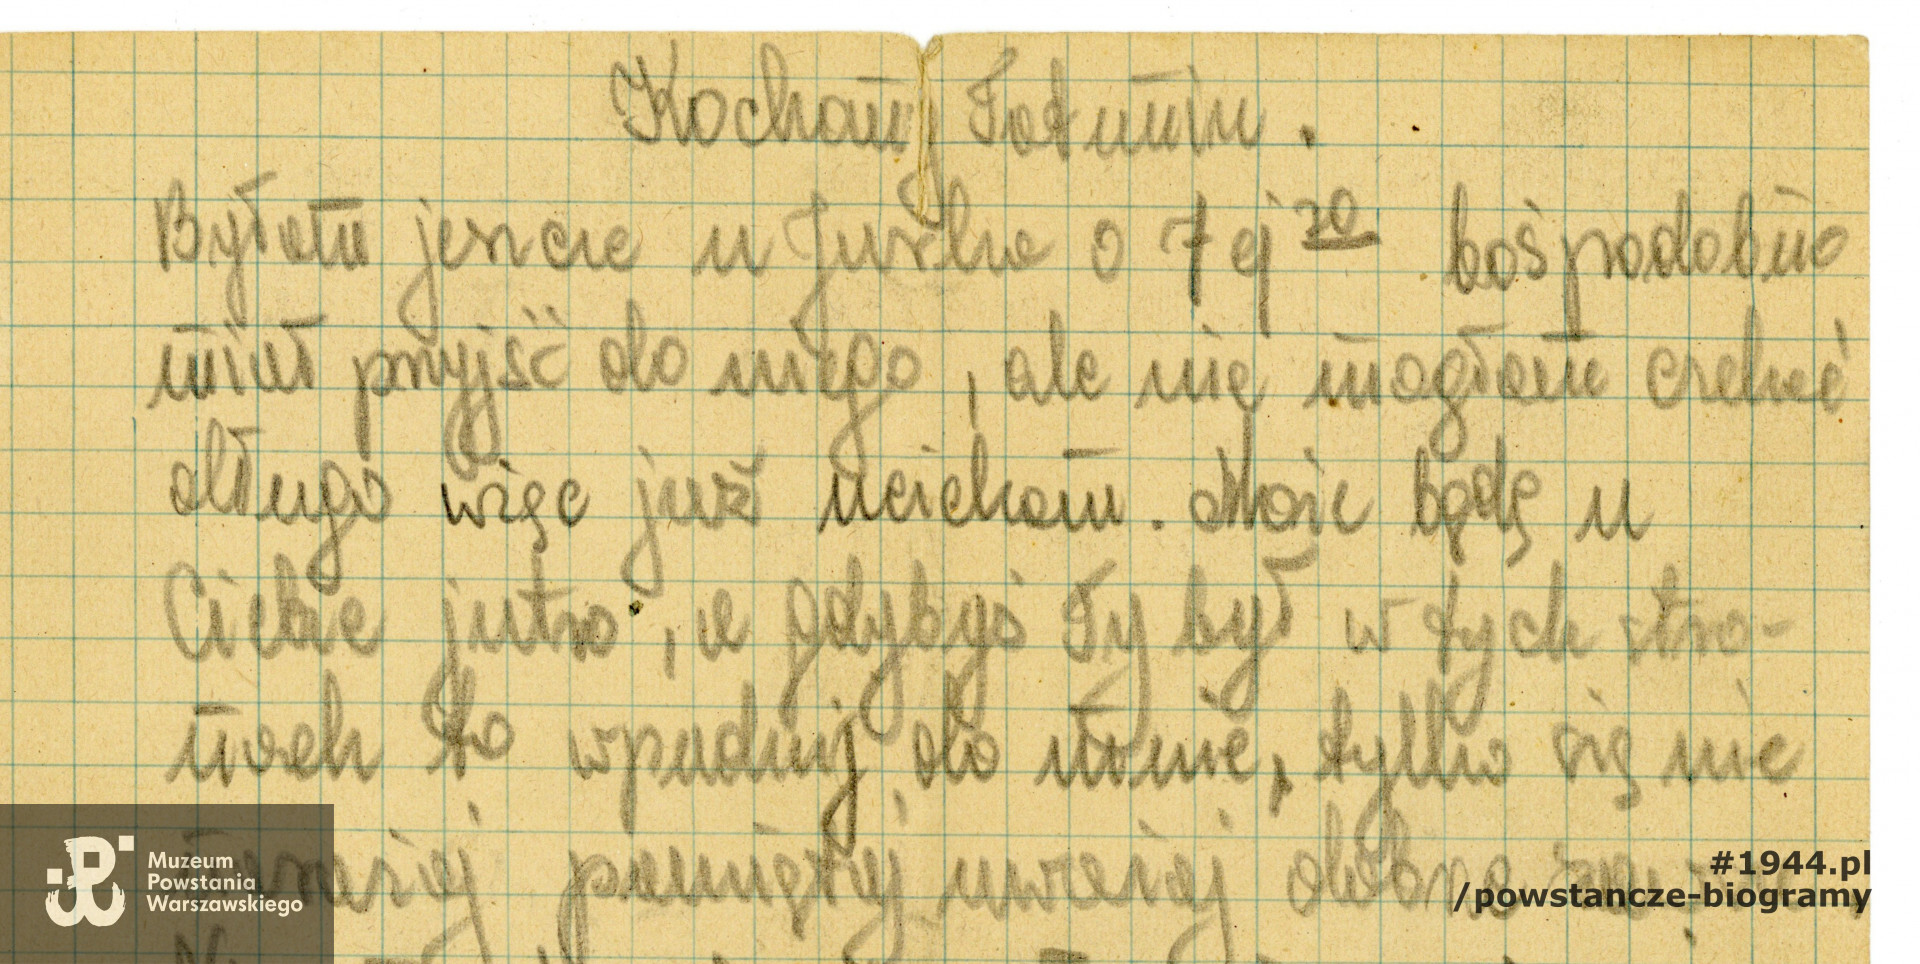 Kochany Tatuniu.
Byłam jeszcze u Jurka o 7 ej 30 boś podobno
miał przyjść do niego, ale nie mogłam czekać
długo więc już uciekam. Może będę u
Ciebie jutro, a gdybyś Ty był w tych stro-
nach to wpadnij do mnie, tylko się nie
narażaj pamiętaj uważaj
Muzeum
Powstania
Warszawskiego
#1944.pl
/powstancze-biogramy